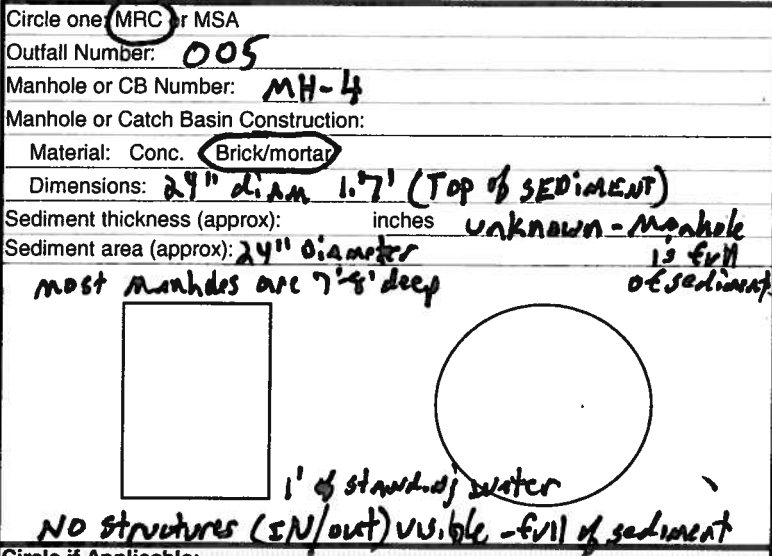 Circle one: MRC or MSA
Outfall Number: 005
Manhole or CB Number: MH-4
Manhole or Catch Basin Construction:
Material: Conc. Brick/mortar
Dimensions: 24" diam 1.7' (Top of SEDiMENT)
Sediment thickness (approx): inches unknown - Manhole
Sediment area (approx): 24" Diameter is full
most manholes are 7'-8' deep of sediment.
1' of standing water
NO structures (IN/out) visible - full of sediment
Circle if Applicable: